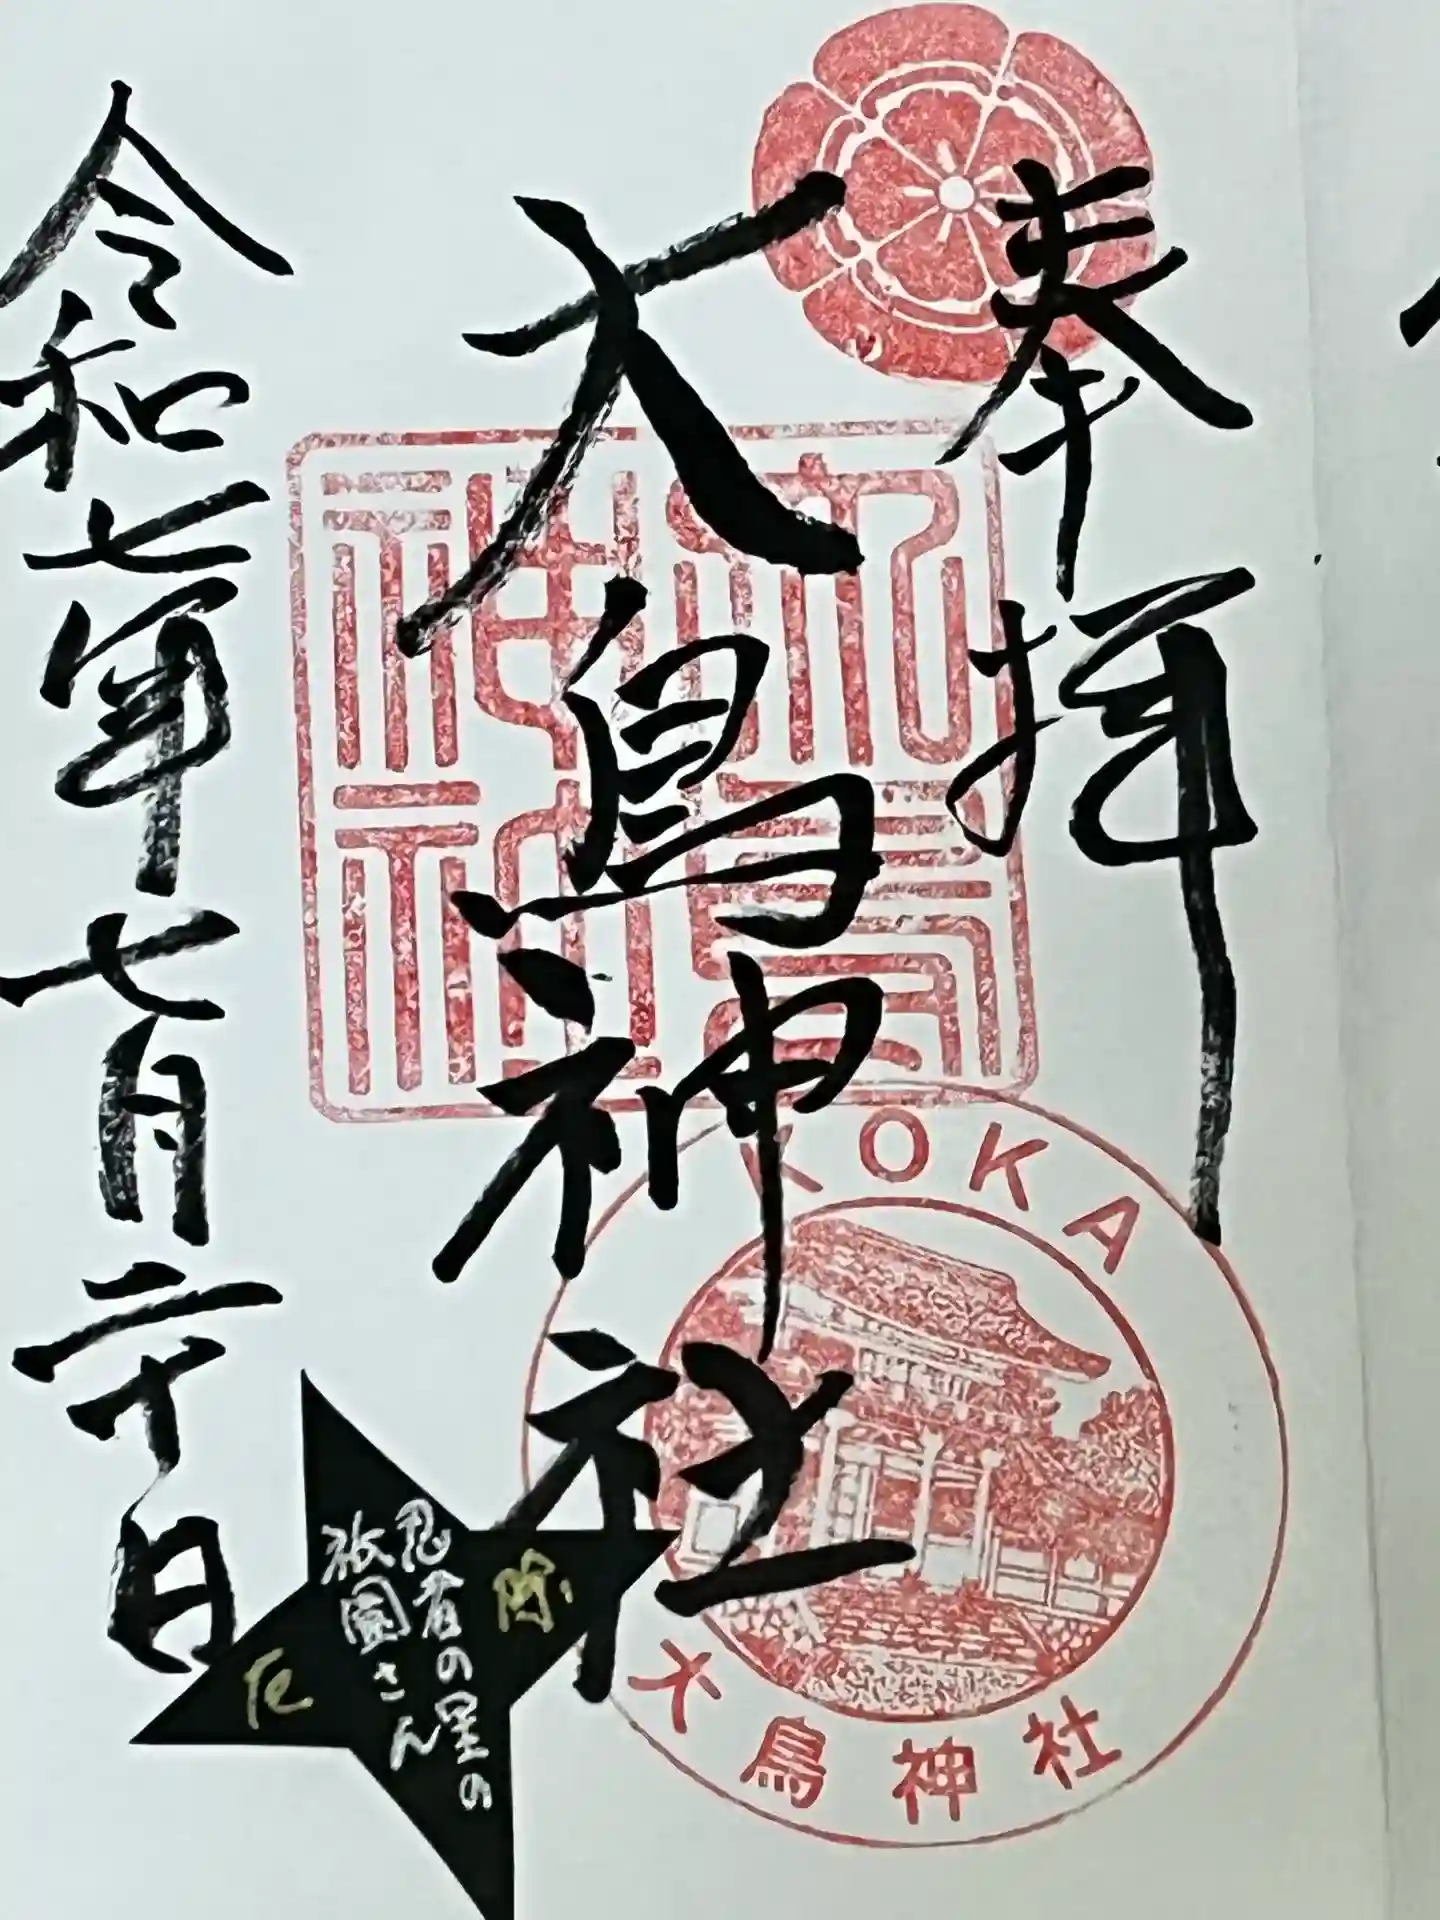 奉拝
大鳥神社
令和七年七月二十日
大鳥神社
KOKA
大鳥神社
忍者の里の
祇園さん
厄除